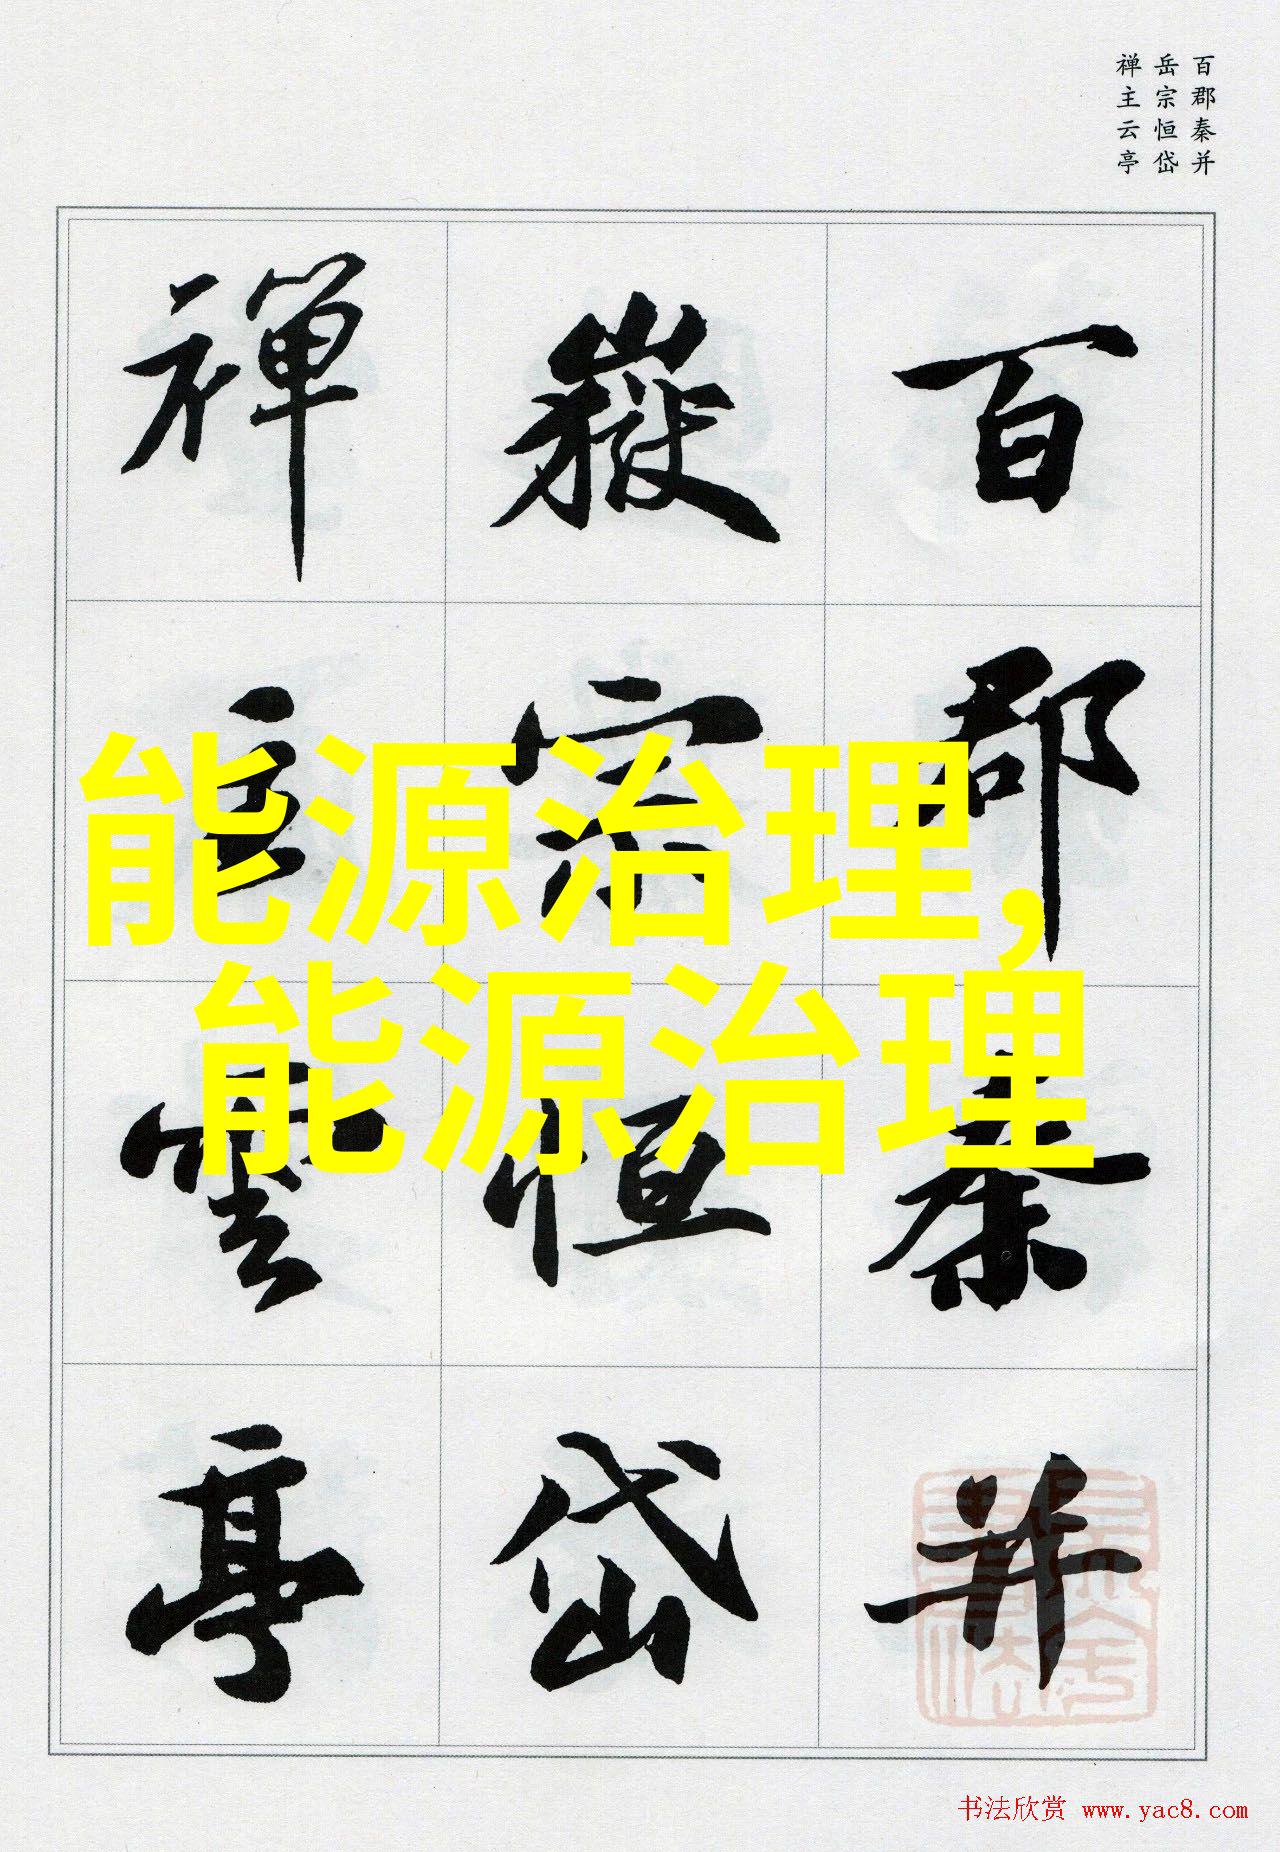 百郡秦并
岳宗恒岱
禅主云亭
百郡秦并
嶽宗恒岱
禪主雲亭
能源治理,
能源治理
书法欣赏 www.yac8.com